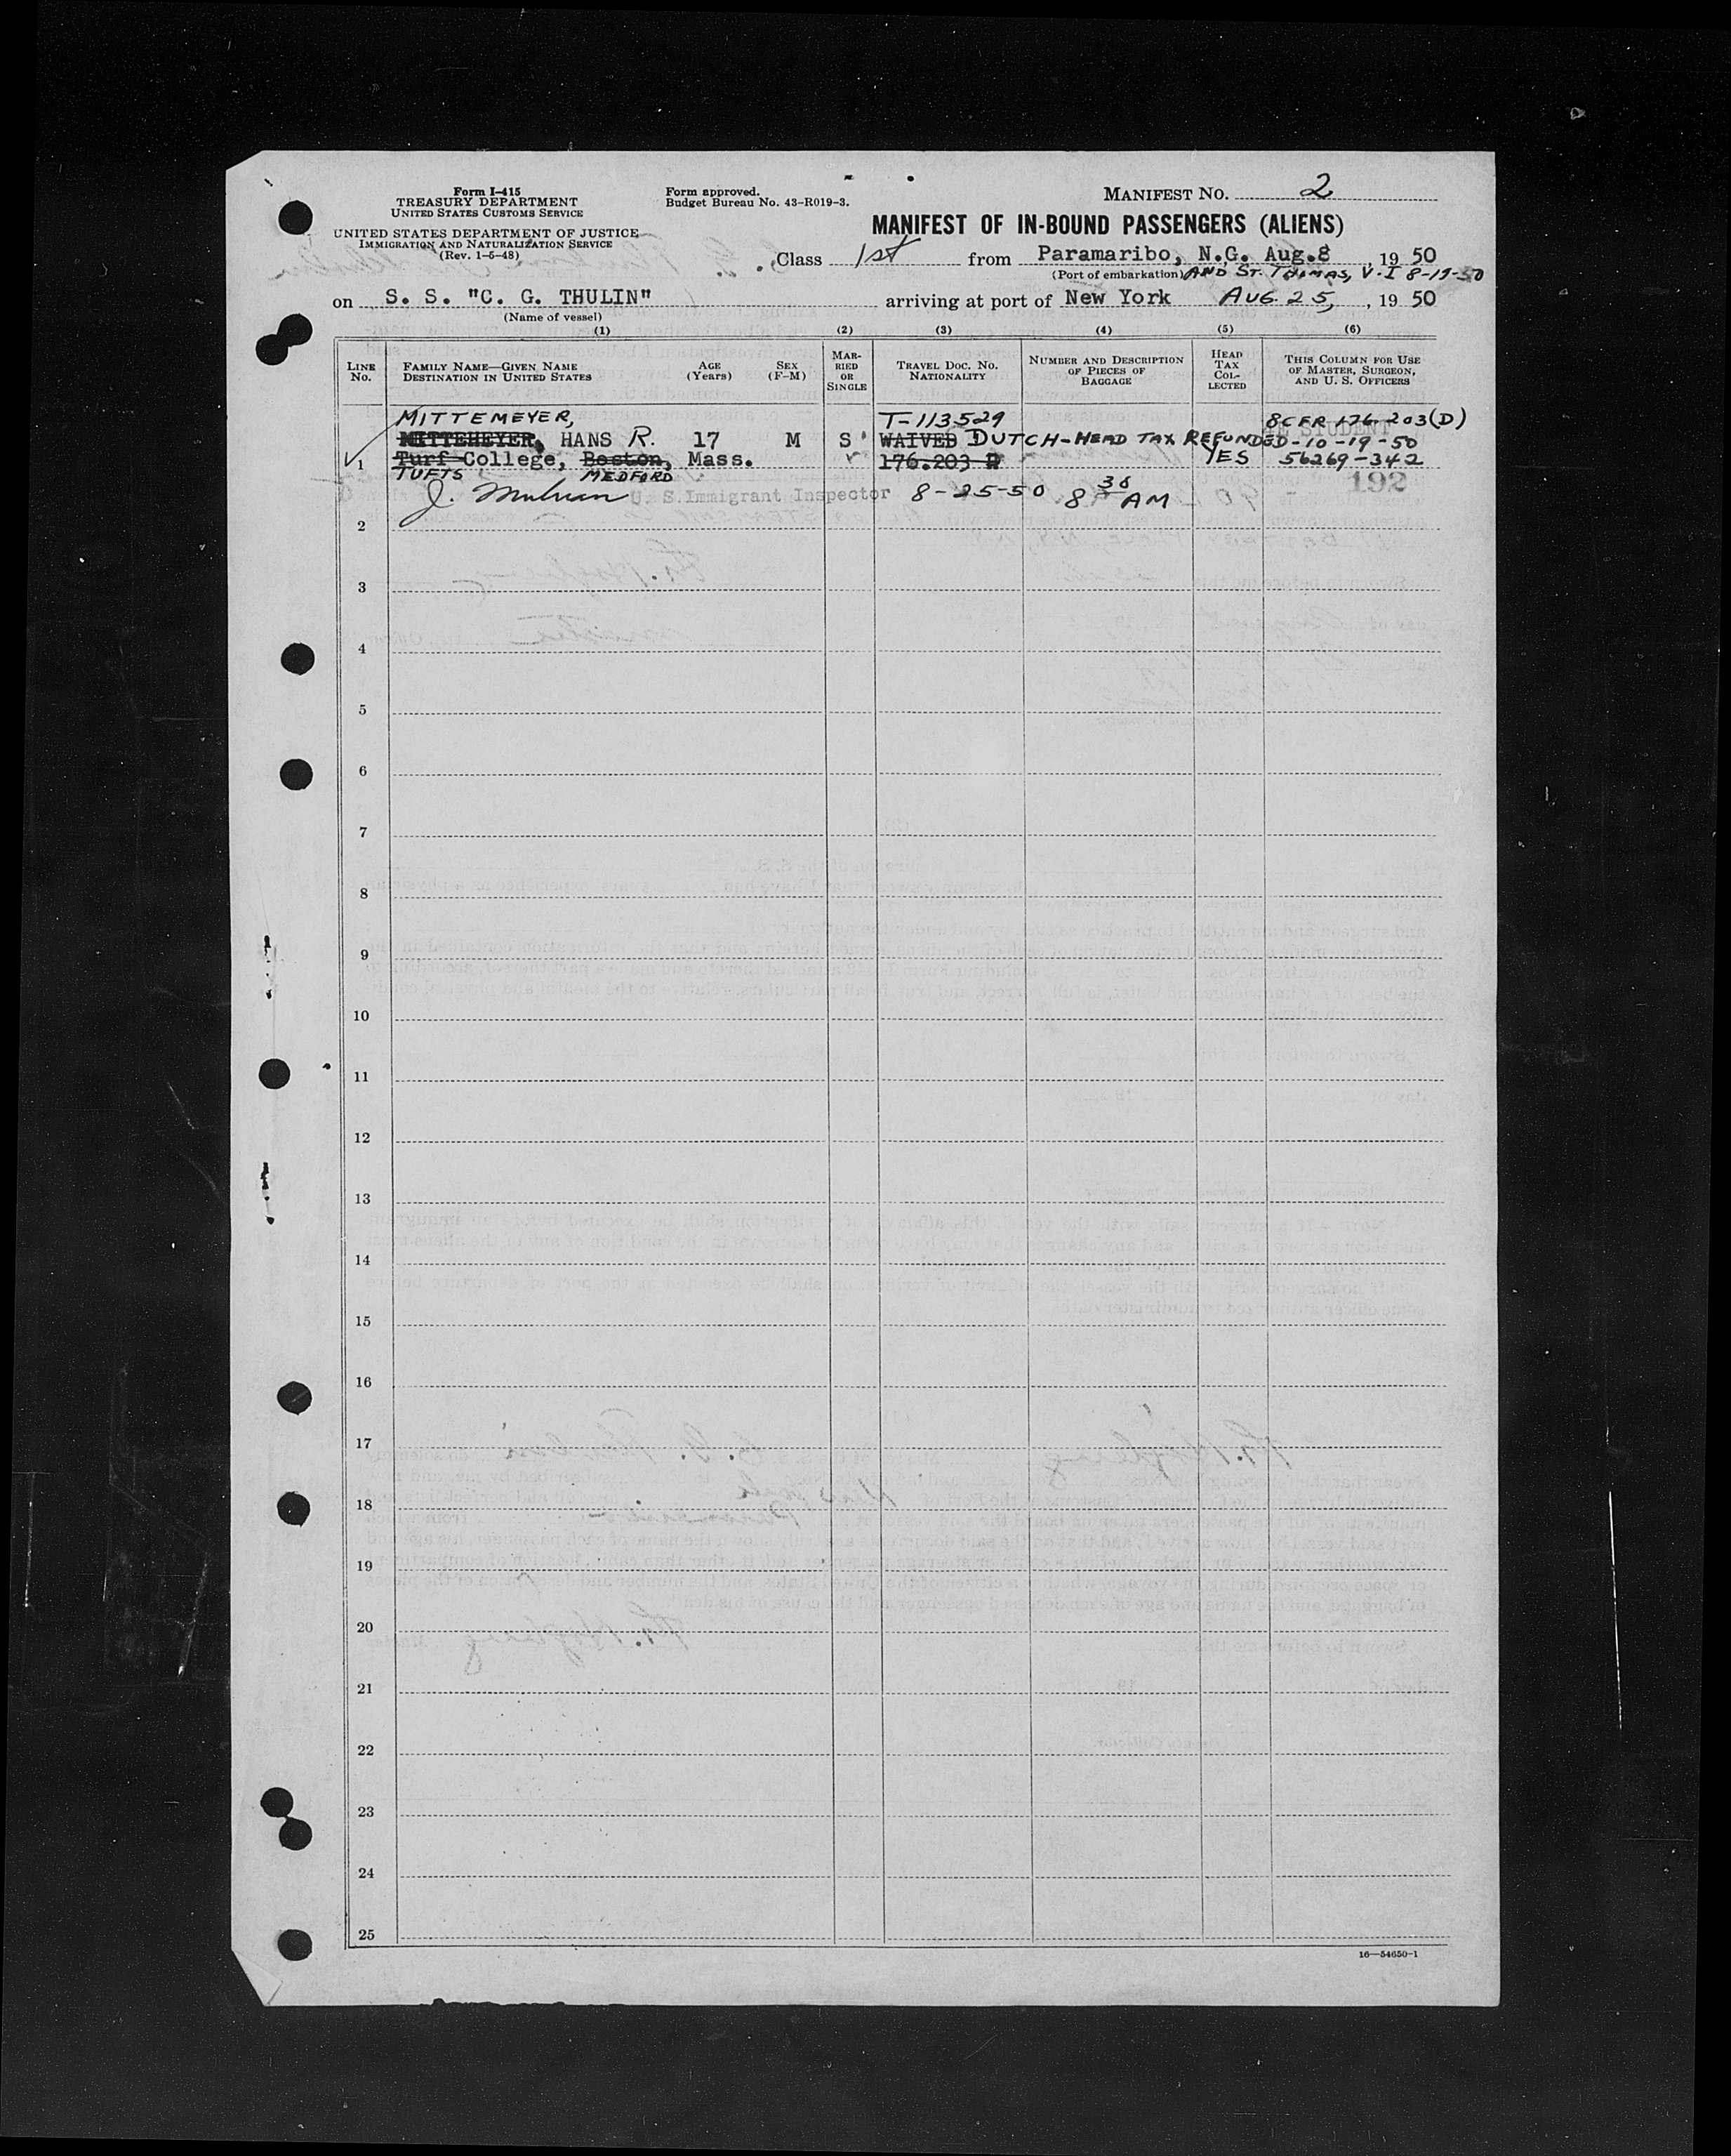 Form I-415
TREASURY DEPARTMENT
UNITED STATES CUSTOMS SERVICE
UNITED STATES DEPARTMENT OF JUSTICE
IMMIGRATION AND NATURALIZATION SERVICE
(Rev. 1-5-48)
Form approved.
Budget Bureau No. 43-R019-3.
MANIFEST NO. 2
MANIFEST OF IN-BOUND PASSENGERS (ALIENS)
Class 1st from Paramaribo, N.G. Aug.8, 1950
(Port of embarkation) AND ST. THOMAS, V.I 8-19-50
on S. S. "C. G. THULIN" arriving at port of New York AUG. 25, , 1950
(Name of vessel)
(1) (2) (3) (4) (5) (6)
LINE No. FAMILY NAME—GIVEN NAME DESTINATION IN UNITED STATES AGE (Years) SEX (F-M) MARRIED OR SINGLE TRAVEL DOC. No. NATIONALITY NUMBER AND DESCRIPTION OF PIECES OF BAGGAGE HEAD TAX COLLECTED THIS COLUMN FOR USE OF MASTER, SURGEON, AND U. S. OFFICERS
MITTEMEYER, T-113529 8CFR 176-203(D)
MITTEHEYER, HANS R. 17 M S WAIVED DUTCH-HEAD TAX REFUNDED-10-19-50
1 Turf College, Boston, Mass. 176.203 D YES 56269-342
TUFTS MEDFORD
U. S. Immigrant Inspector 8-25-50 8 38 AM 192
STUDENT
2
3
4
5
6
7
8
9
10
11
12
13
14
15
16
17
18
19
20
21
22
23
24
25
16—54650-1